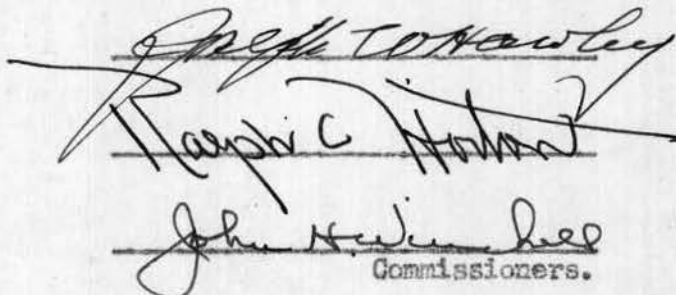 Joseph
Ralph C Horton
John H. Winchell
Commissioners.